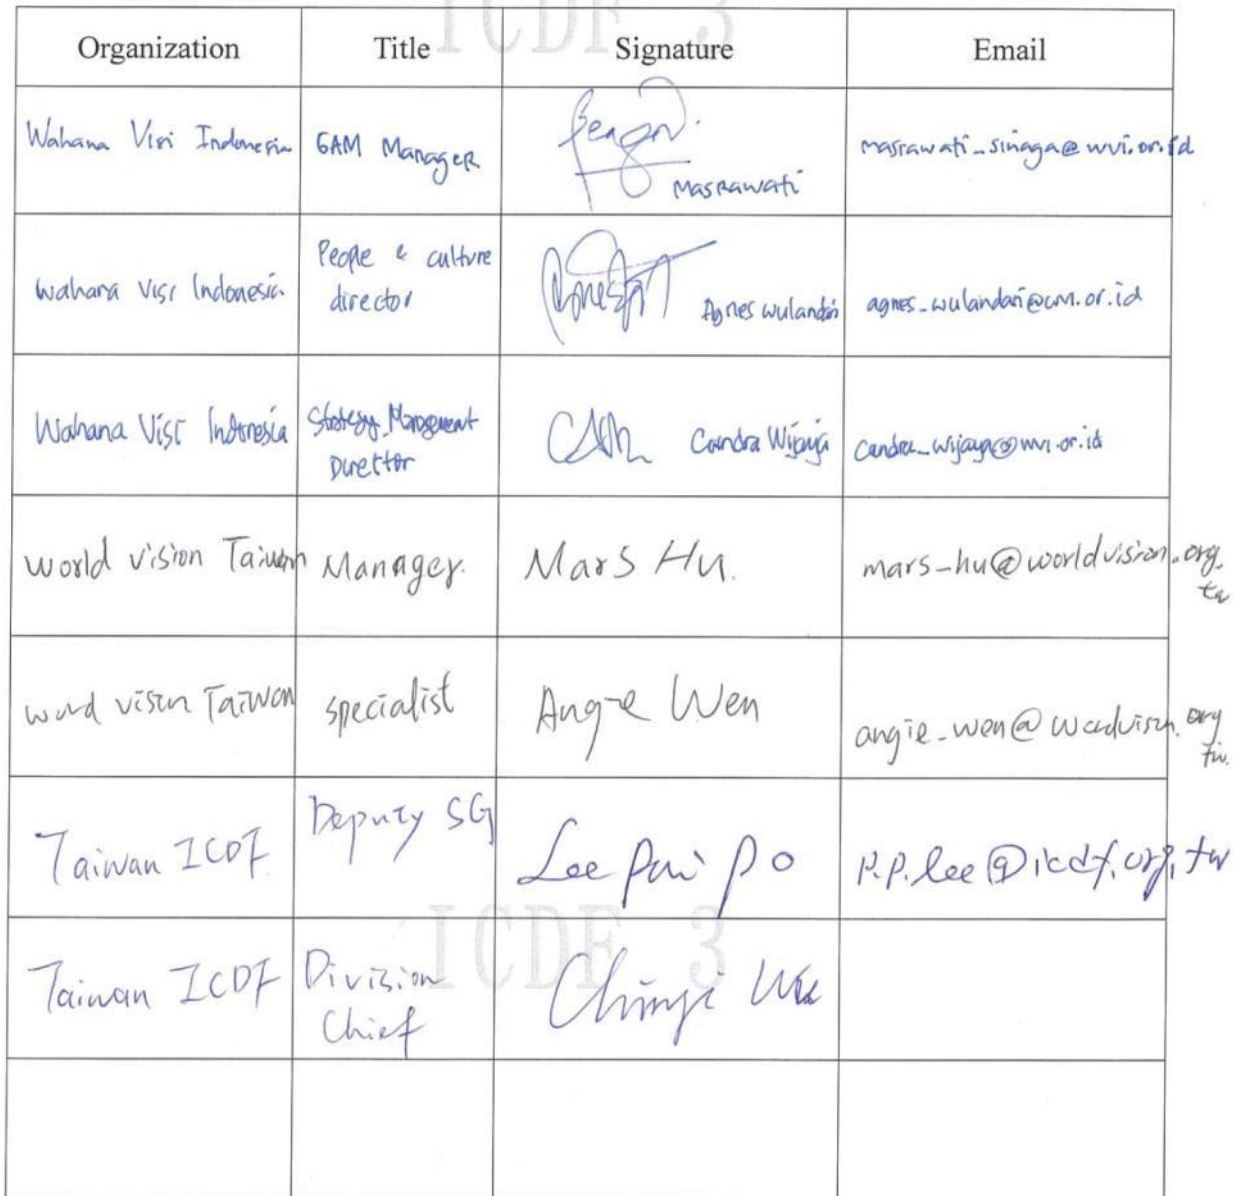 ICDF 3
Organization Title Signature Email
Wahana Visi Indonesia GAM Manager Masrawati masrawati_sinaga@wvi.or.id
People & culture
Wahana Visi Indonesia director Agnes wulandari agnes_wulandari@wvi.or.id
Wahana Visi Indonesia Strategy Management Candra Wijaya candra_wijaya@wvi.or.id
Director
world vision Taiwan Manager. Mars Hu. mars-hu@worldvision.org.
tw
world vision Taiwan specialist Angie Wen angie_wen@worldvision.org
tw.
Taiwan ICDF Deputy SG Lee Pai Po P.P.lee@icdf.org.tw
ICDF 3
Taiwan ICDF Division
Chief